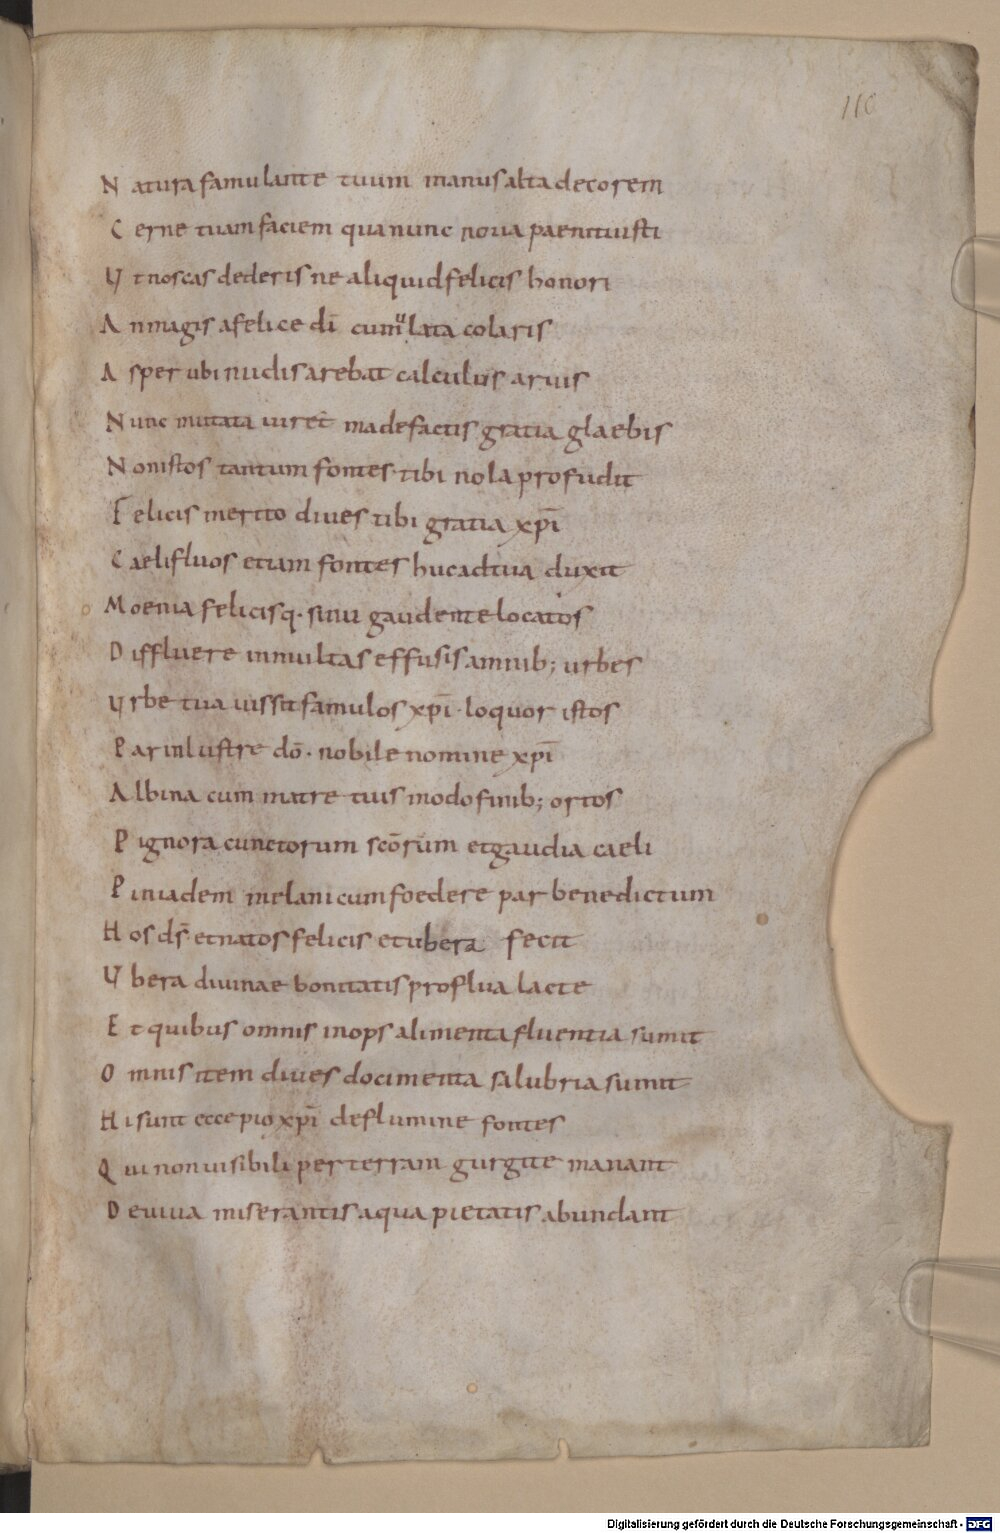 110
N atura famulante tuum manus alta decorem
C erne tuam faciem qua nunc noua paenituisti
U t noscas dederis ne aliquid felicis honori
A n magis a felice dī cumulata colaris
A sper ubi nudis arebat calculus aruis
N unc mutata uiret madefactis gratia glaebis
N on istos tantum fontes · tibi nola profudit
F elicis merito diues tibi gratia xpī
C aelifluos etiam fontes huc ad tua duxit
M oenia felicisq · sinu gaudente locatos
D iffluere in multas effusis amnib; urbes
U rbe tua iussit famulos xpī · loquor istos
P ar inlustre dō · nobile nomine xpī
A lbina cum matre tuis modo finib; ortos
P ignora cunctorum scōrum et gaudia caeli
P iniadem melani cum foedere par benedictum
H os dš et natos felicis et ubera fecit
U bera diuinae bonitatis proflua lacte
E t quibus omnis inops alimenta fluentia sumit
O mnis item diues documenta salubria sumit
H i sunt ecce pio xpī de flumine fontes
Q ui non uisibili per terram gurgite manant
D e uiua miserantis aqua pietatis abundant
Digitalisierung gefördert durch die Deutsche Forschungsgemeinschaft - DFG